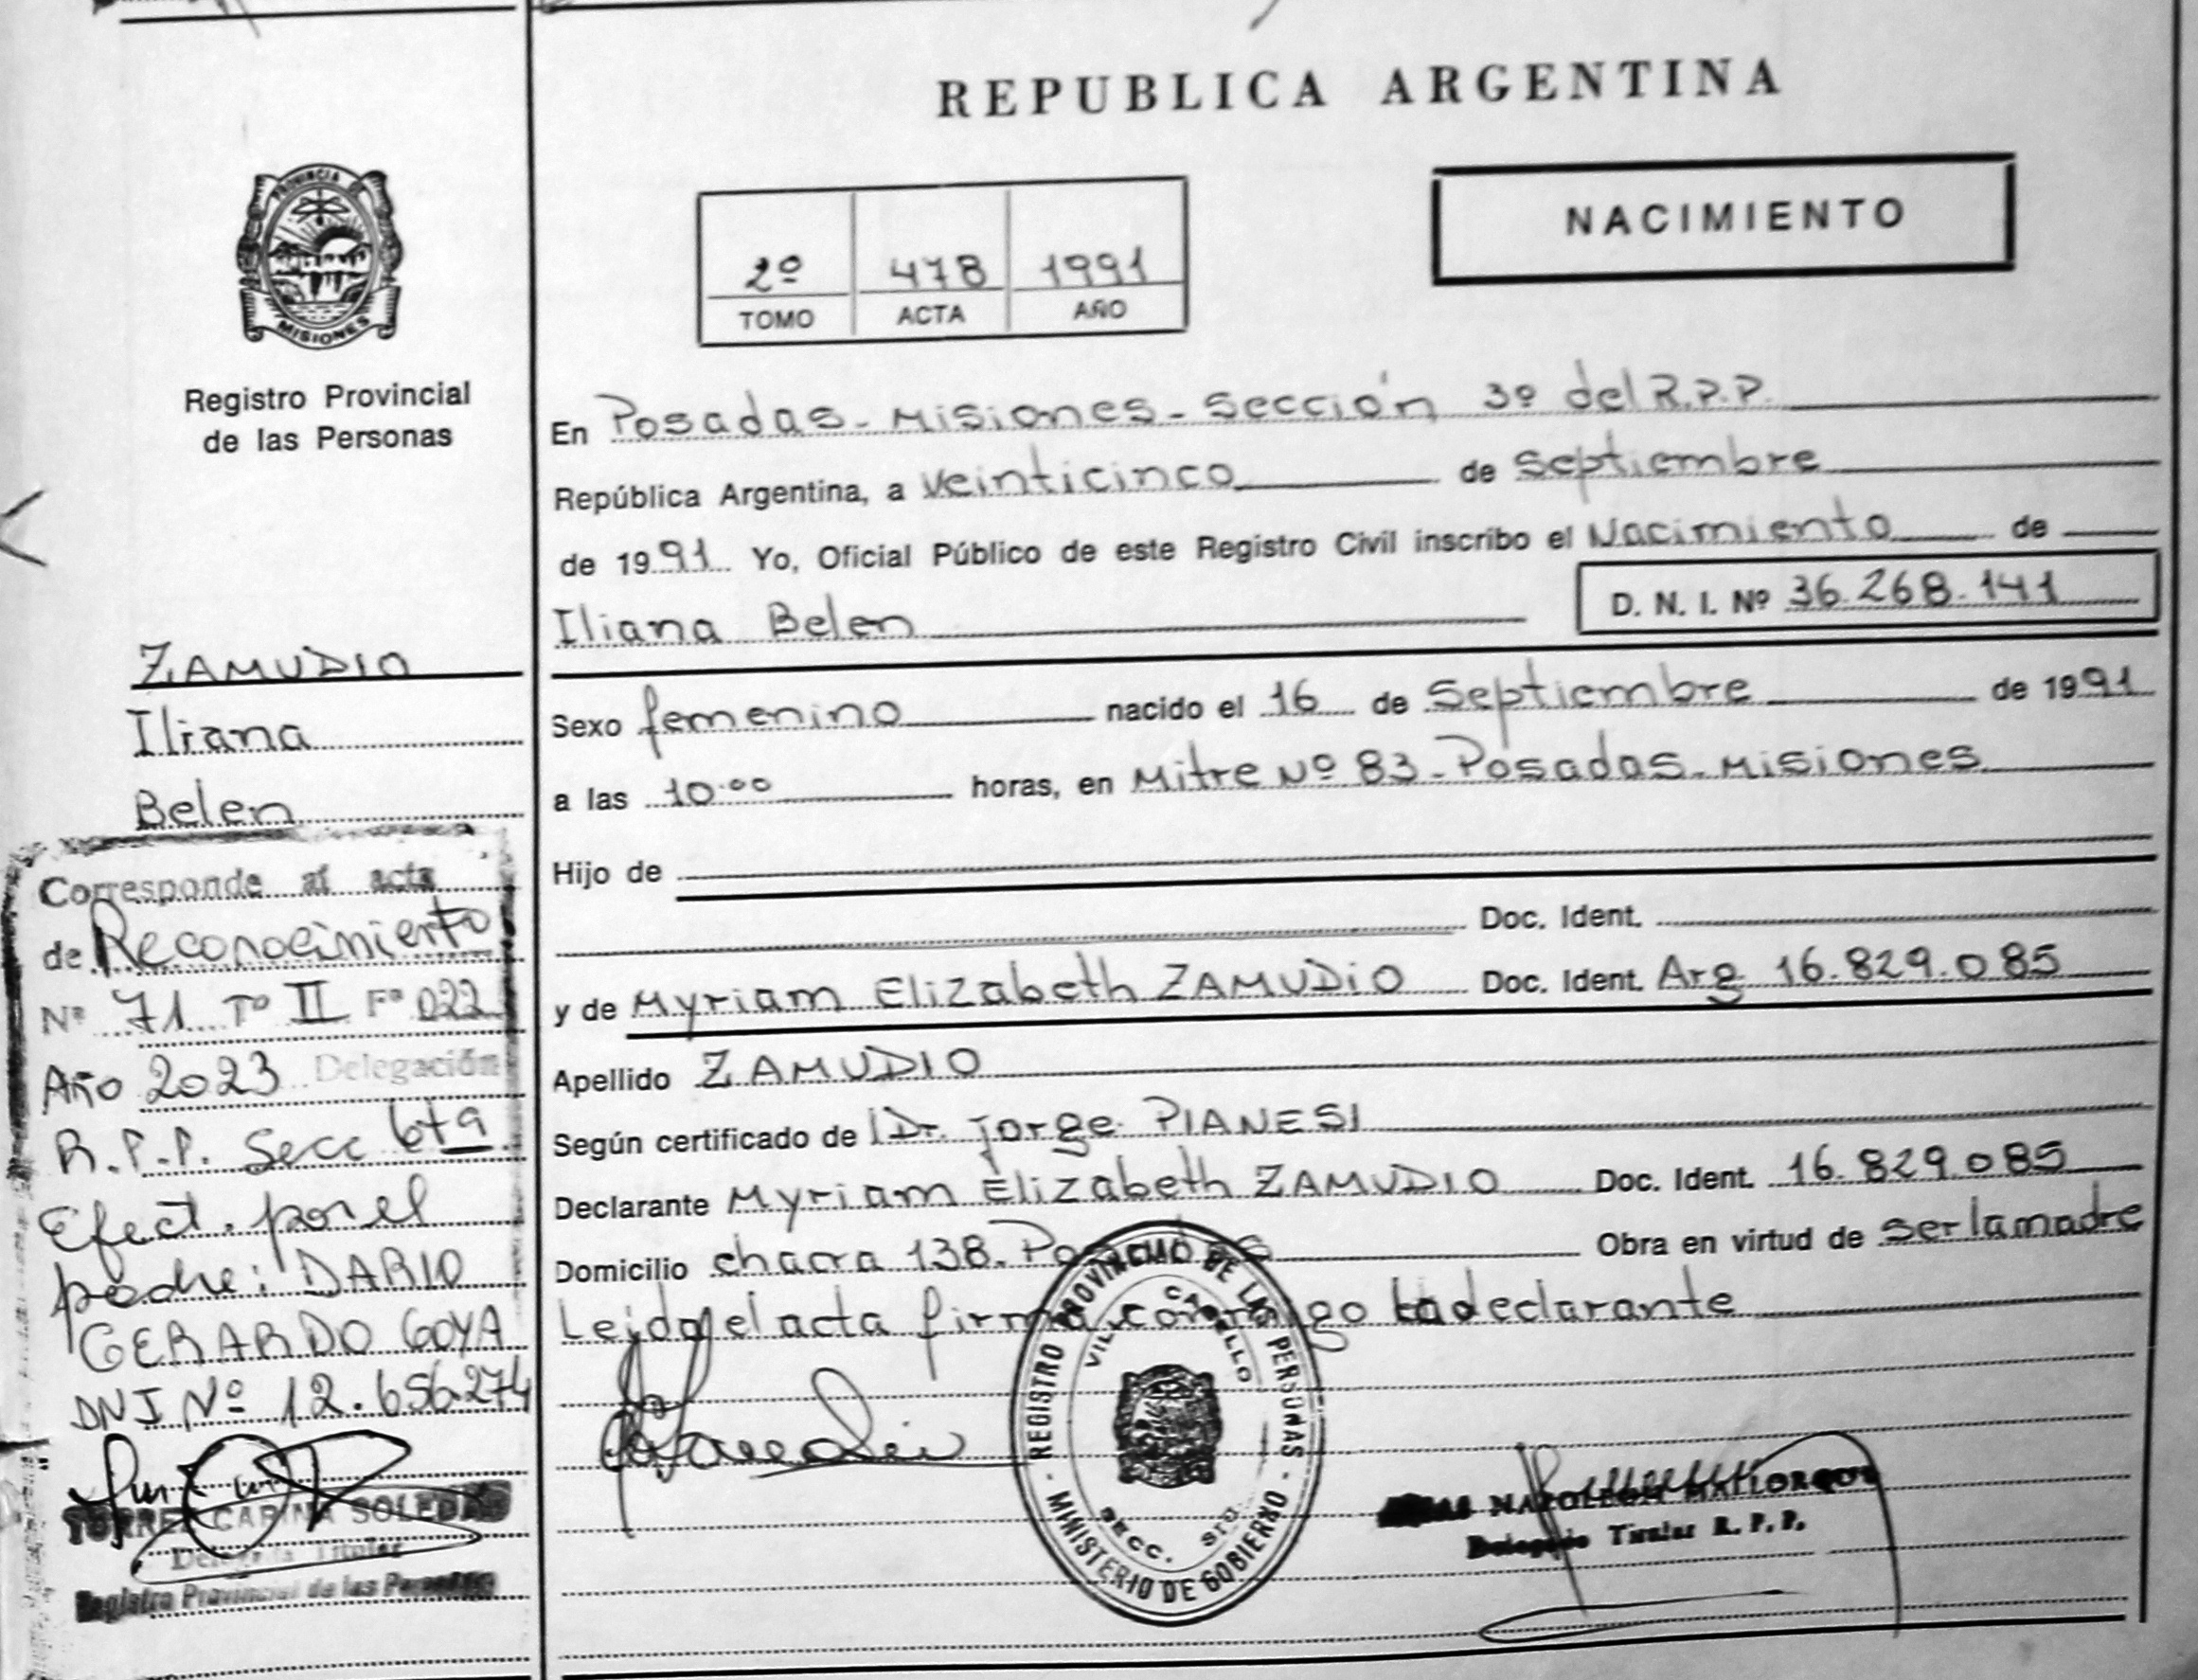 REPUBLICA ARGENTINA
PROVINCIA DE
MISIONES
Registro Provincial
de las Personas
2º 478 1991
TOMO ACTA AÑO
NACIMIENTO
En Posadas - Misiones - Sección 3º del R.P.P.
República Argentina, a veinticinco de Septiembre
de 1991 Yo, Oficial Público de este Registro Civil inscribo el Nacimiento de
Iliana Belen D. N. I. Nº 36.268.141
Sexo femenino nacido el 16 de Septiembre de 1991
a las 10.00 horas, en Mitre Nº 83 - Posadas - Misiones
Hijo de
Doc. Ident.
y de Myriam Elizabeth ZAMUDIO Doc. Ident. Arg. 16.829.085
Apellido ZAMUDIO
Según certificado de Dr. Jorge PIANESI
Declarante Myriam Elizabeth ZAMUDIO Doc. Ident. 16.829.085
Domicilio chacra 138. Posadas Obra en virtud de ser la madre
Leida el acta firma conmigo la declarante
ZAMUDIO
Iliana
Belen
Corresponde al acta
de Reconocimiento
Nº 71 Tº II Fº 022
Año 2023 Delegación
R.P.P. Secc 6ta
Efect. por el
padre: DARIO
GERARDO GOYA
DNI Nº 12.656.274
CARINA SOLEDAD
Delegada Titular
Registro Provincial de las Personas
REGISTRO PROVINCIAL DE LAS PERSONAS
MINISTERIO DE GOBIERNO
SECC.
NAPOLEON MALLORQUI
Delegado Titular R. P. P.